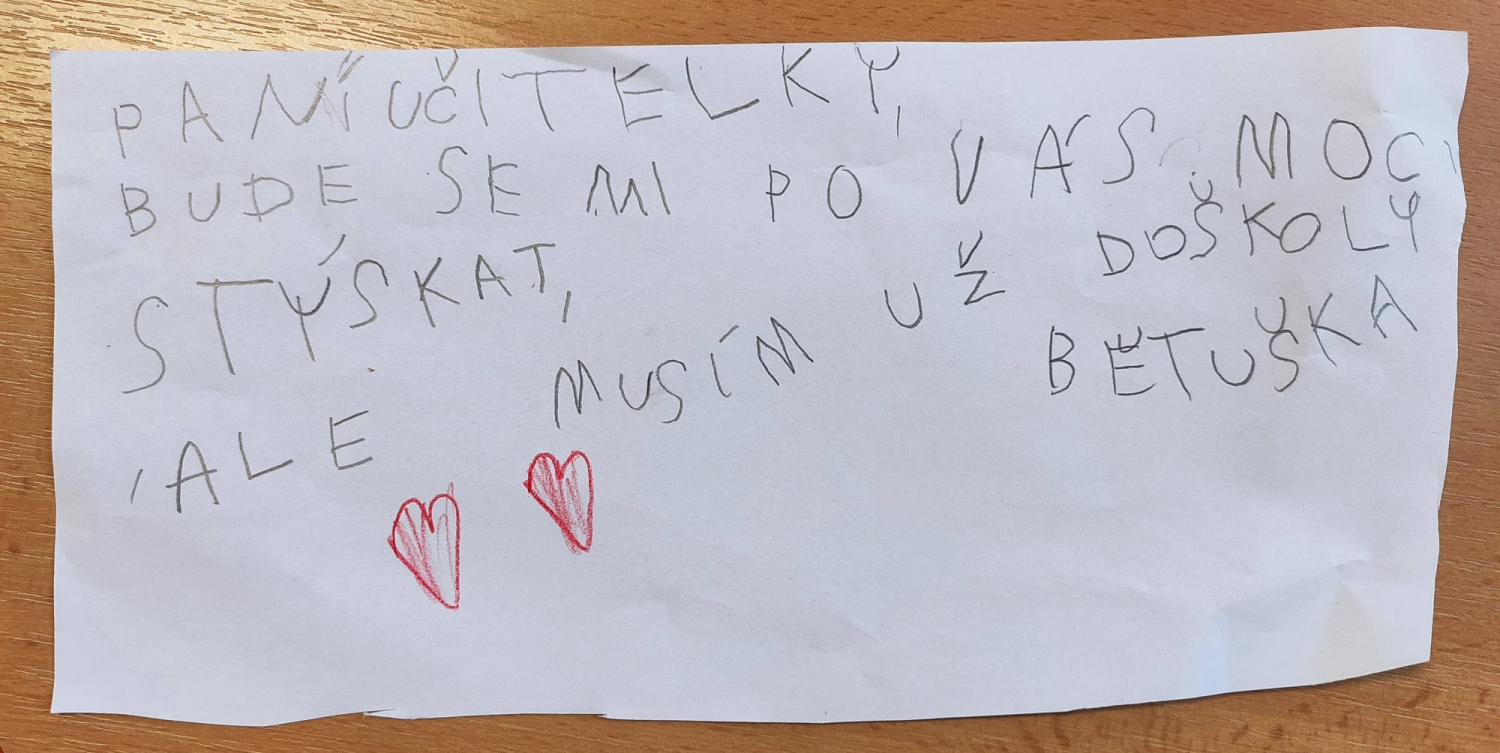 PANÍ UČITELKY,
BUDE SE MI PO VÁS MOC
STÝSKAT,
,ALE MUSÍM UŽ DOŠKOLY
BĚTUŠKA